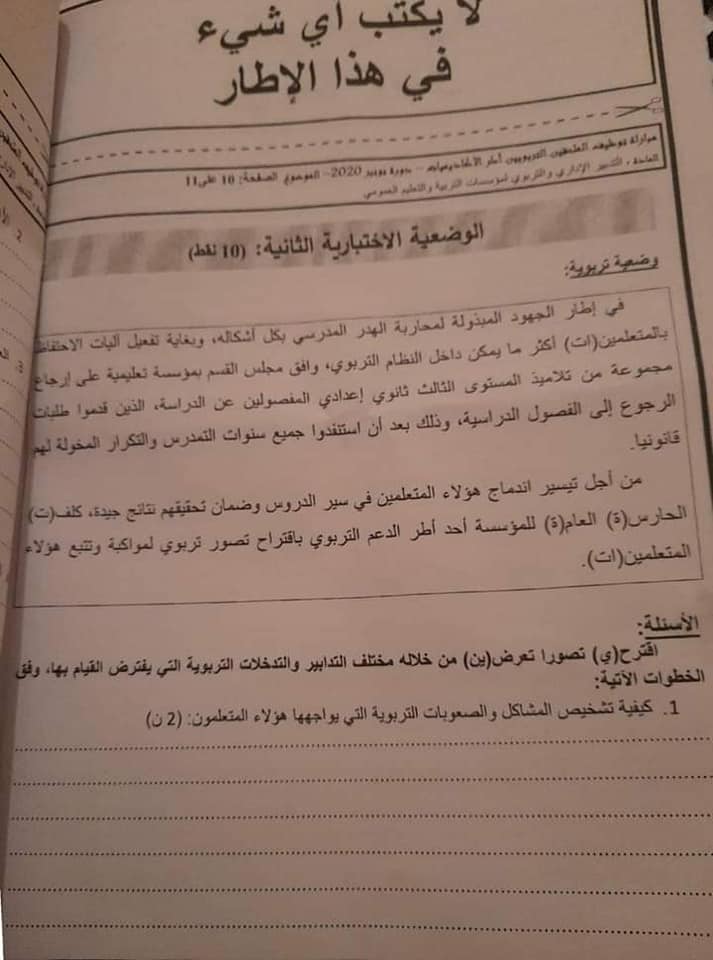 لا يكتب أي شيء
في هذا الإطار
مباراة توظيف الملحقين التربويين أطر الأكاديميات – دورة نونبر 2020 – الموضوع الصفحة: 10 على 11
المادة: التدبير الإداري والتربوي لمؤسسات التربية والتعليم العمومي
الوضعية الاختبارية الثانية: (10 نقط)
وضعية تربوية:
في إطار الجهود المبذولة لمحاربة الهدر المدرسي بكل أشكاله، وبغاية تفعيل آليات الاحتفاظ
بالمتعلمين(ات) أكثر ما يمكن داخل النظام التربوي، وافق مجلس القسم بمؤسسة تعليمية على إرجاع
مجموعة من تلاميذ المستوى الثالث ثانوي إعدادي المفصولين عن الدراسة، الذين قدموا طلبات
الرجوع إلى الفصول الدراسية، وذلك بعد أن استنفدوا جميع سنوات التمدرس والتكرار المخولة لهم
قانونيا.
من أجل تيسير اندماج هؤلاء المتعلمين في سير الدروس وضمان تحقيقهم نتائج جيدة، كلف(ت)
الحارس(ة) العام(ة) للمؤسسة أحد أطر الدعم التربوي باقتراح تصور تربوي لمواكبة وتتبع هؤلاء
المتعلمين(ات).
الأسئلة:
اقترح(ي) تصورا تعرض(ين) من خلاله مختلف التدابير والتدخلات التربوية التي يفترض القيام بها، وفق
الخطوات الآتية:
1. كيفية تشخيص المشاكل والصعوبات التربوية التي يواجهها هؤلاء المتعلمون: (2 ن)